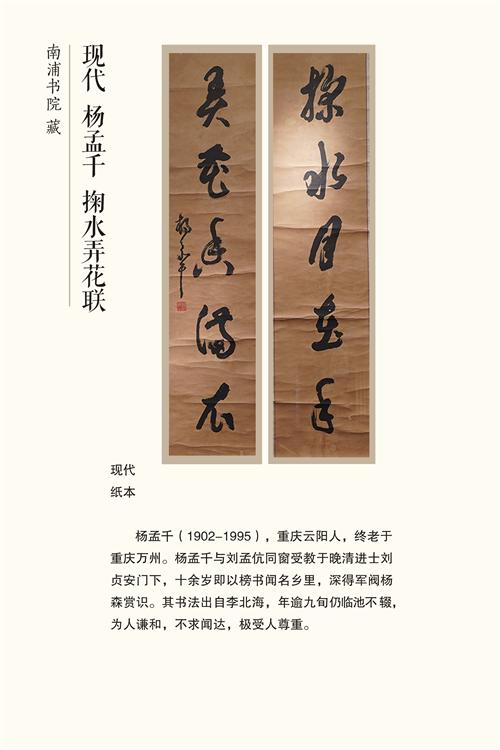 现代 杨孟千 掬水弄花联
南浦书院 藏
掬水月在手
弄花香满衣
杨孟千
现代
纸本
杨孟千（1902-1995），重庆云阳人，终老于
重庆万州。杨孟千与刘孟伉同窗受教于晚清进士刘
贞安门下，十余岁即以榜书闻名乡里，深得军阀杨
森赏识。其书法出自李北海，年逾九旬仍临池不辍，
为人谦和，不求闻达，极受人尊重。